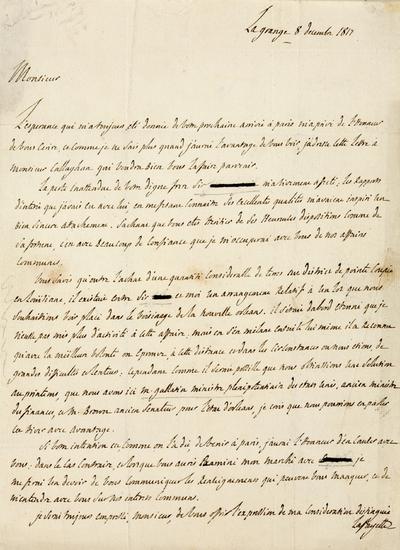 La grange 8 decembre 1817
Monsieur
L'esperance qui m'a toujours été donnée de votre prochaine arrivée à paris m'a privé de l'honneur
de vous écrire, et comme je ne sais plus quand j'aurai l'avantage de vous voir j'adresse cette lettre à
monsieur Callaghan qui voudra bien vous la faire parvenir.
La perte inattendue de votre digne frere Sir m'a vivement affecté; les rapports
d'interet que j'avais eu avec lui en me faisant connaitre ses excellentes qualités m'avaient inspiré un
bien sincere attachement. Sachant que vous etes heritier de ses heureuses dispositions comme de
sa fortune, c'est avec beaucoup de confiance que je m'occuperai avec vous de nos affaires
communes.
Vous savez qu'outre l'achat d'une quantité considerable de terres au district de pointe Coupée
en Louisiane, il existait entre Sir et moi un arrangement relatif à un lot que nous
souhaitions voir placé dans le voisinage de la nouvelle orleans. il s'etait d'abord etonné que je
n'eusse pas mis plus d'activité à cette affaire, mais en s'en melant ensuite lui meme il a reconnu
qu'avec la meilleure volonté on eprouve à cette distance et dans les circonstances ou nous etions, de
grandes difficultés et lenteurs; cependant comme il serait possible que nous obtinssions une solution
au printems, que nous avons ici mr gallatin ministre plenipotentiaire des etats unis, ancien ministre
des finances, et mr ancien senateur pour l'etat d'orleans, je crois que nous pourrions en parler
ici avec avantage.
Si votre intention est comme on l'a dit de venir à paris, j'aurai l'honneur d'en causer avec
vous; dans le cas contraire, et lorsque vous aurez examiné mon marché avec je
me ferai un devoir de vous communiquer les renseignemens qui peuvent vous manquer, et de
m'entendre avec vous sur nos interets communs.
je serai toujours empressé, monsieur de vous offrir l'expression de ma consideration distinguée
Lafayette